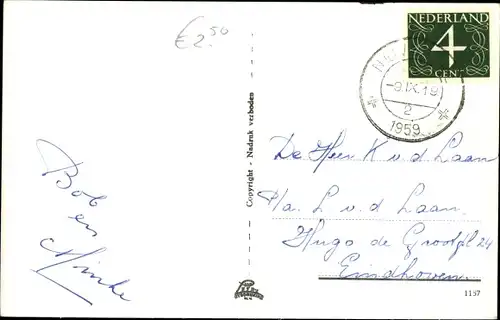 €2.50
NEDERLAND
4
CENT
-9.IX.19
2
1959
Copyright - Nadruk verboden
Bob
en
De Heer K v.d Laan
P/a. L v.d Laan.
Hugo de Grootpl 24
Eindhoven
1157